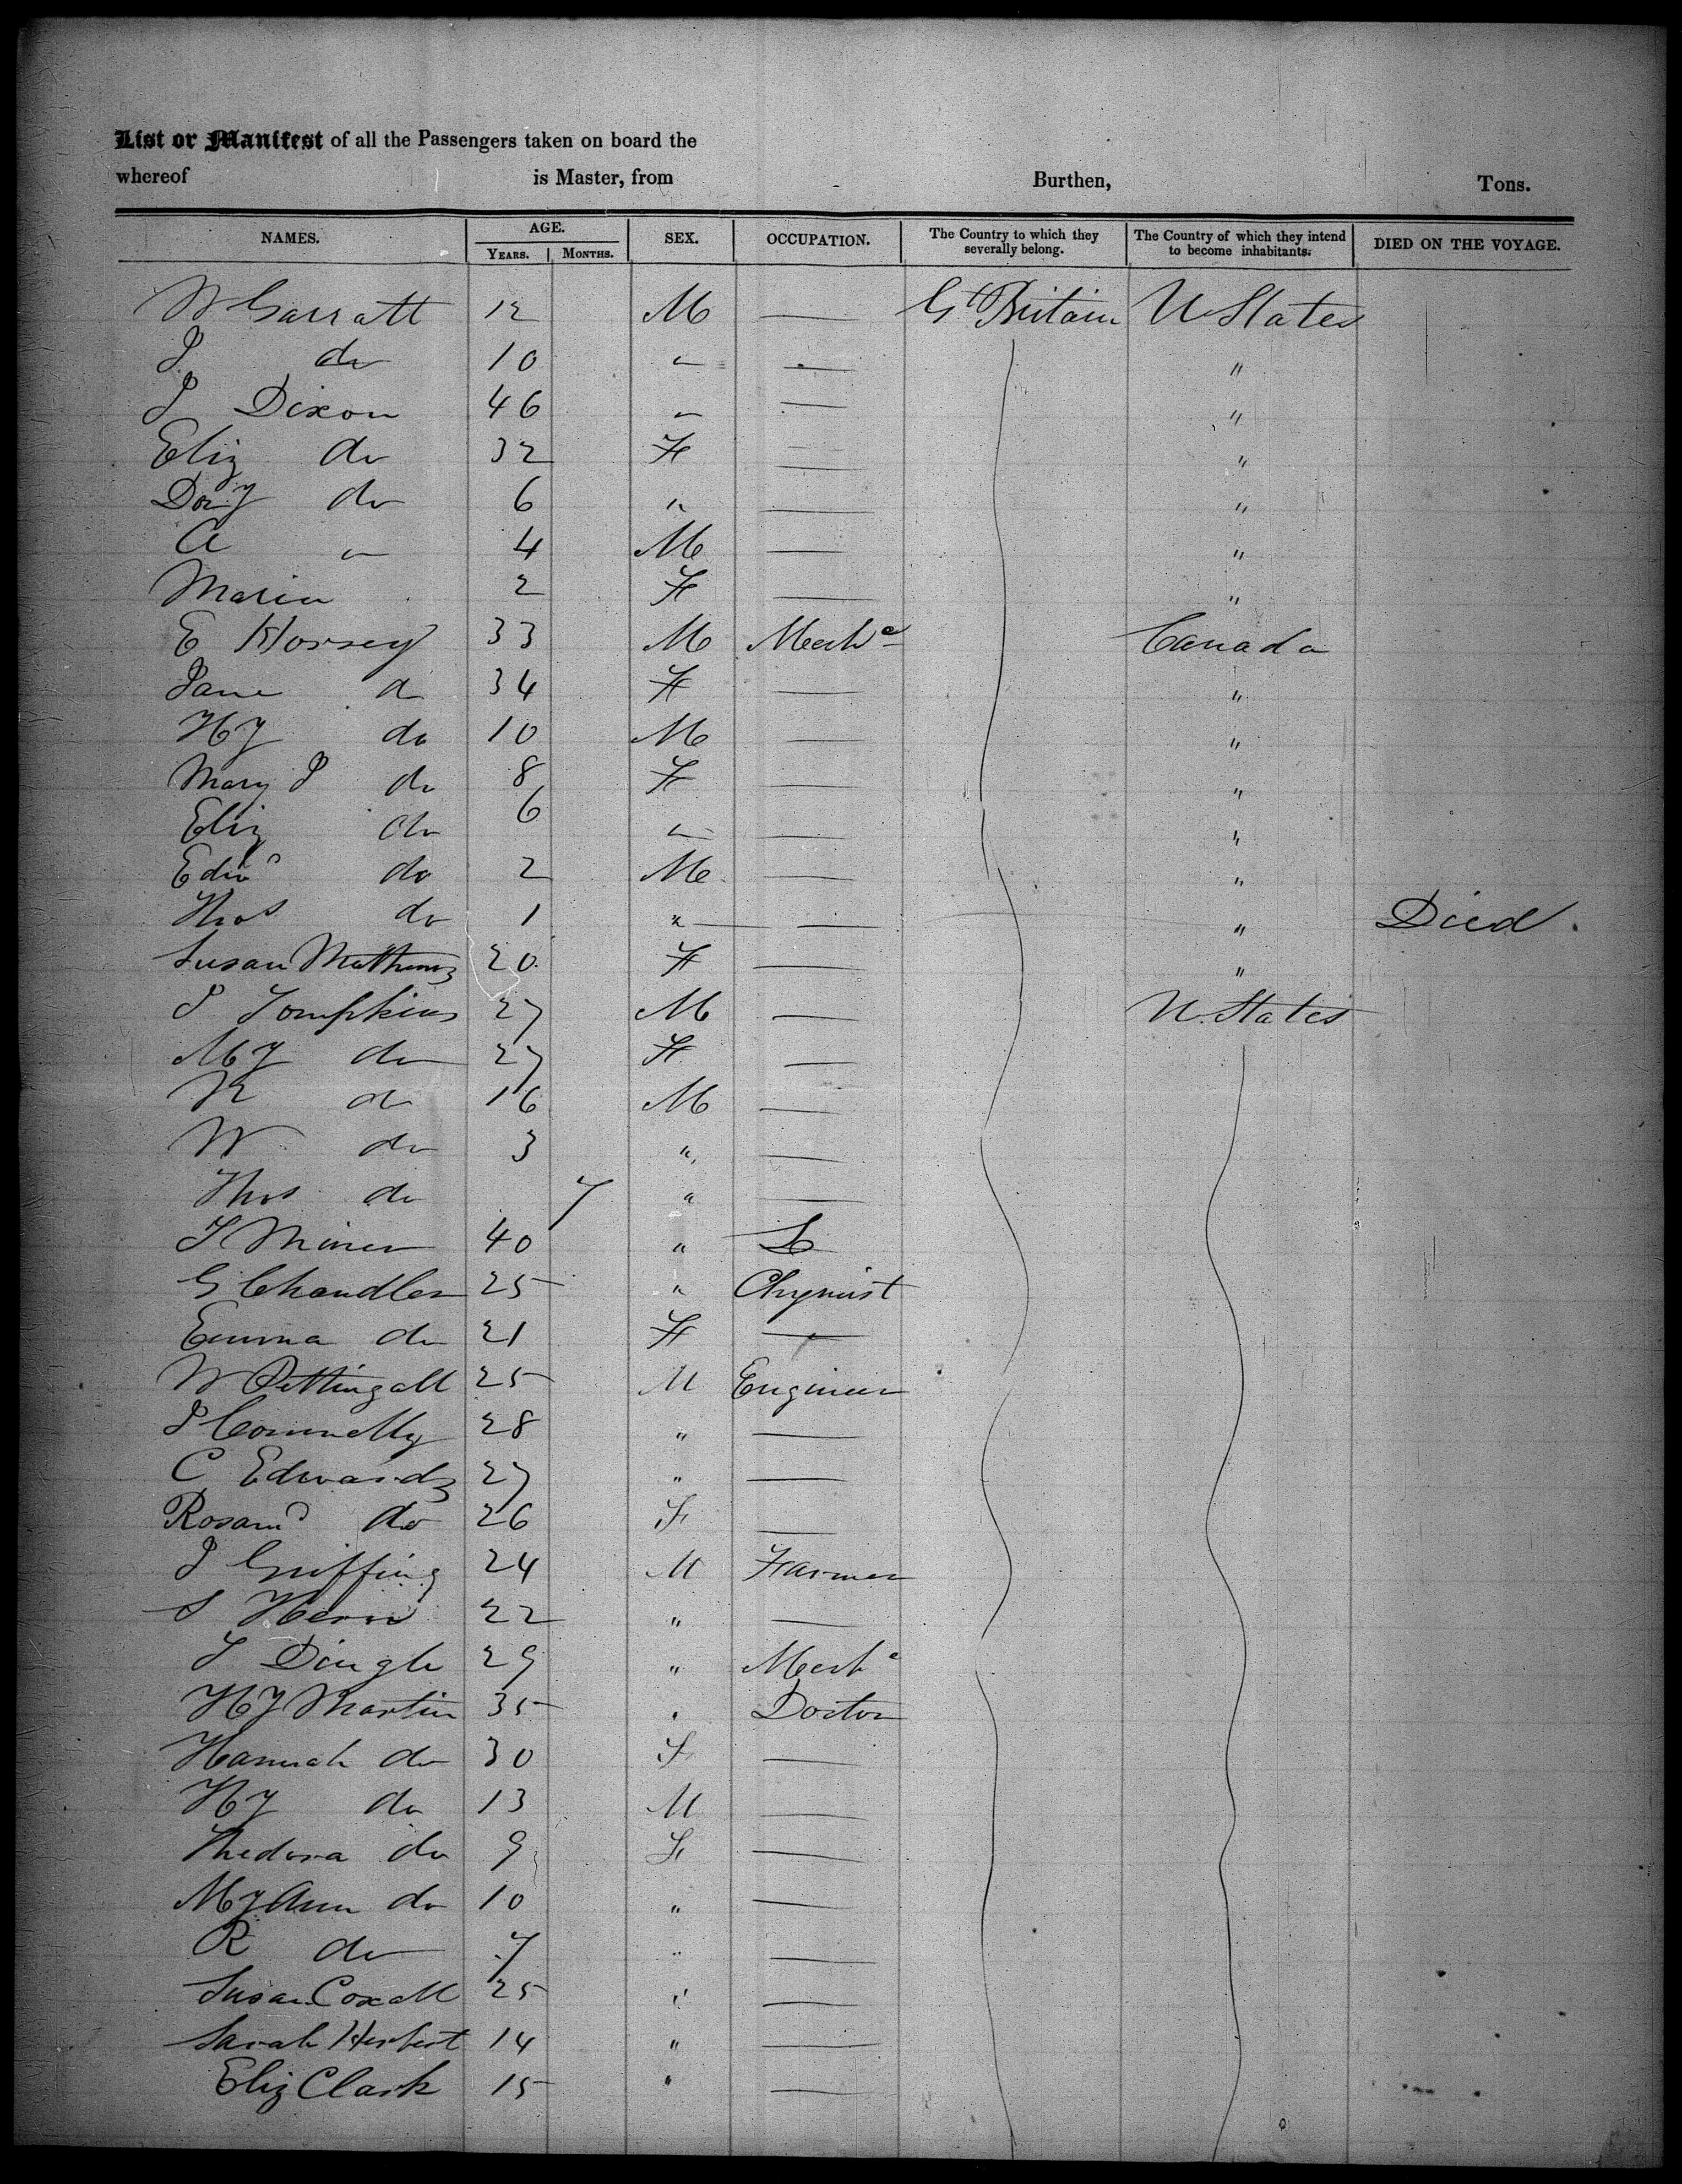 List or Manifest of all the Passengers taken on board the
whereof is Master, from Burthen, Tons.
NAMES. AGE. SEX. OCCUPATION. The Country to which they severally belong. The Country of which they intend to become inhabitants. DIED ON THE VOYAGE.
YEARS. MONTHS.
W Garratt 12 M — Gt Britain U States
J do 10 " — "
J Dixon 46 " — "
Eliz do 32 F — "
Doy do 6 " — "
A " 4 M — "
Maria 2 F — "
E Horsey 33 M Mechc Canada
Jane do 34 F — "
Hy do 10 M — "
Mary J do 8 F — "
Eliz do 6 " — "
Edwd do 2 M — "
Thos do 1 " — " Died.
Susan Mathews 20 F — "
J Tompkins 27 M — U. States
My do 27 F —
do 16 M —
W do 3 " —
Thos do 7 " —
J Miner 40 "
G Chandler 25 " Chymist
Emma do 21 F —
W Pettingall 25 M Engineer
J Connelly 28 " —
C Edwards 27 " —
Rosamd do 26 F —
J Griffing 24 M Farmer
S 22 " —
J Dingle 29 " Mechc
Hy Martin 35 " Doctor
Hannah do 30 F —
Hy do 13 M —
Thedora do 9 F —
My Ann do 10 " —
R do 7 " —
Susan Coxall 25 " —
Sarah Herbert 14 " —
Eliz Clark 15 " —